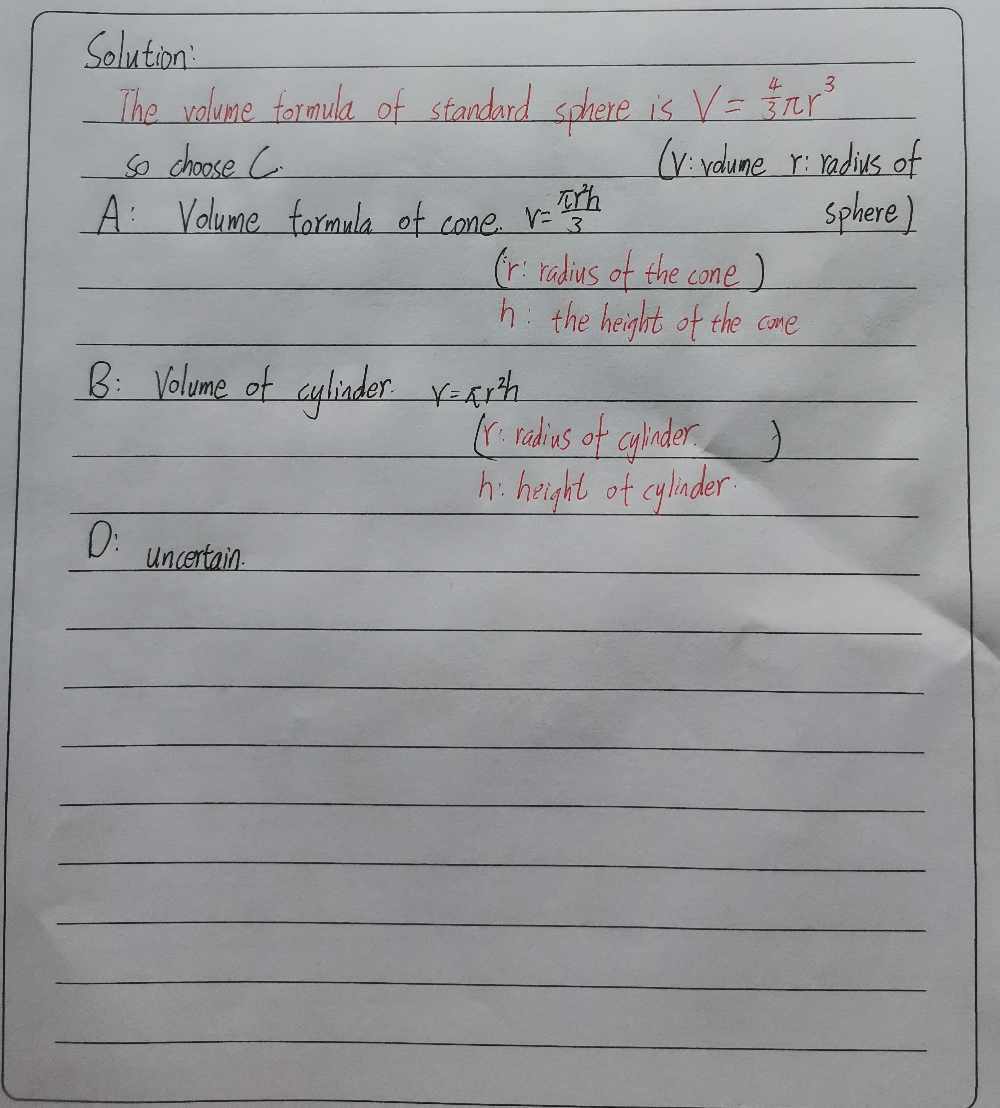 Solution:
The volume formula of standard sphere is V = 4/3 πr³
so choose C. (V: volume r: radius of
sphere)
A: Volume formula of cone. V = πr²h/3
(r: radius of the cone)
h: the height of the cone
B: Volume of cylinder. V = πr²h
(r: radius of cylinder. )
h: height of cylinder.
D: uncertain.